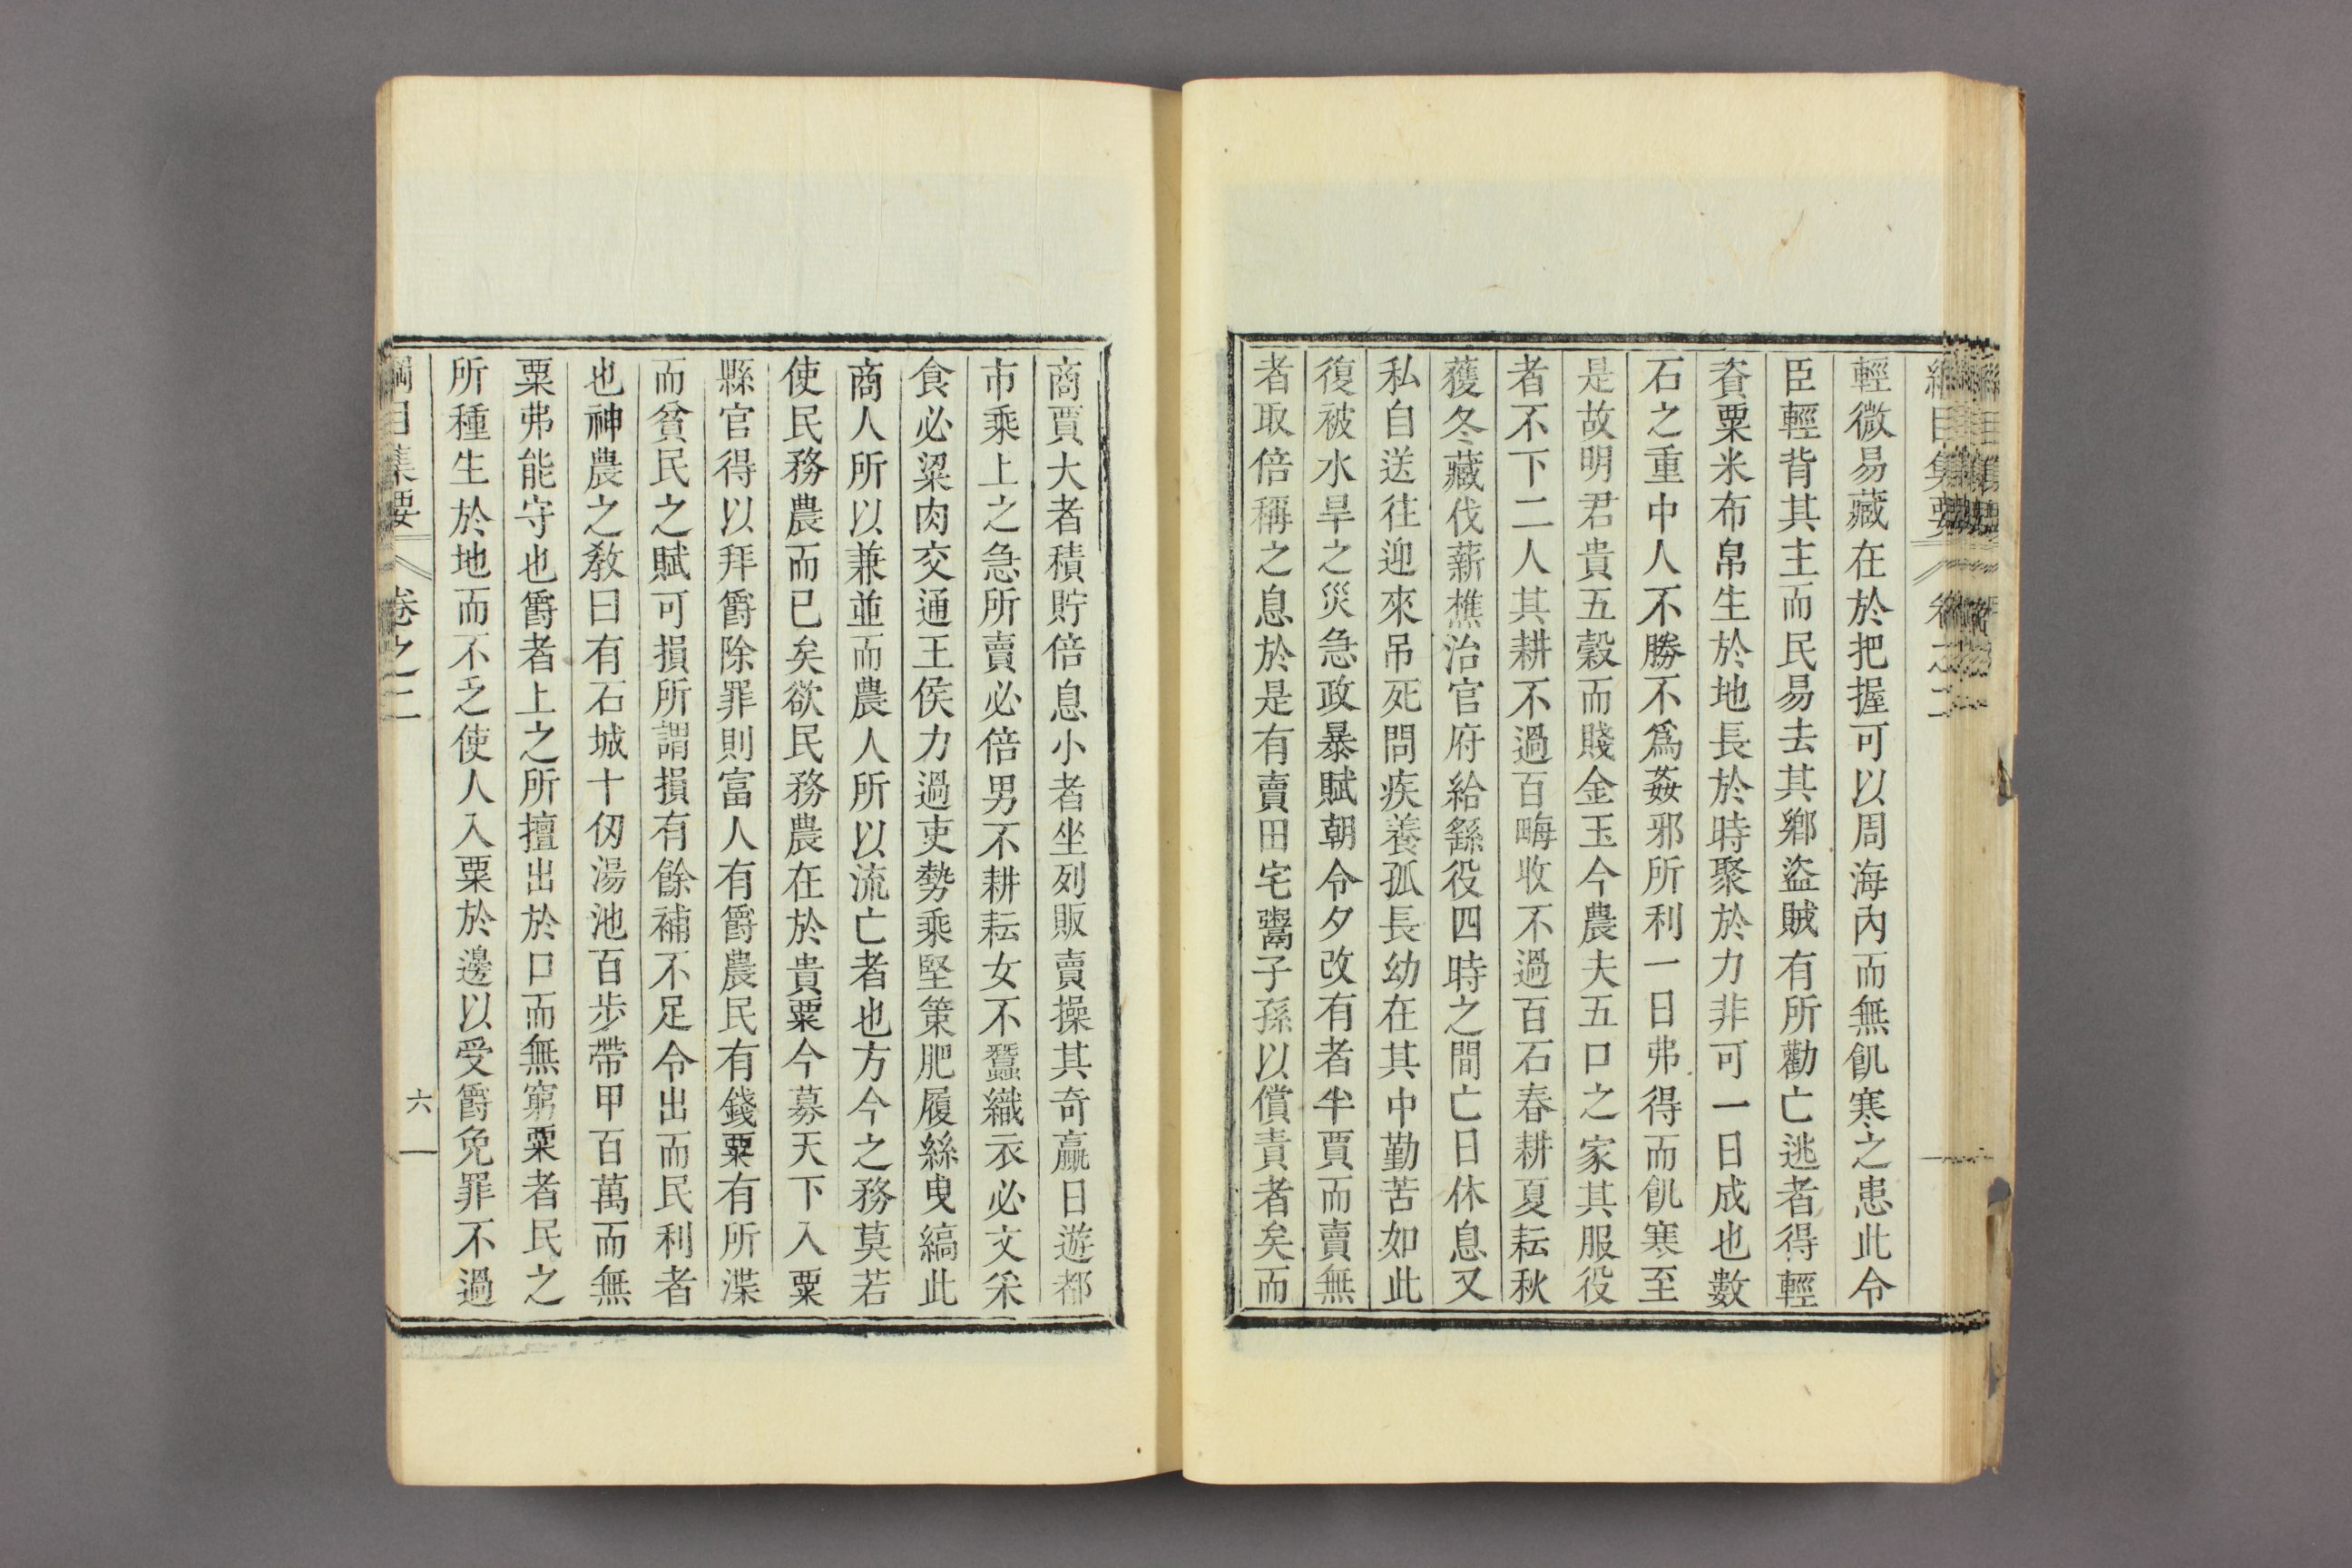 輕微易藏在於把握可以周海內而無飢寒之患此令
臣輕背其主而民易去其鄉盜賊有所勸亡逃者得輕
資粟米布帛生於地長於時聚於力非可一日成也數
石之重中人不勝不爲姦邪所利一日弗得而飢寒至
是故明君貴五穀而賤金玉今農夫五口之家其服役
者不下二人其耕不過百畮收不過百石春耕夏耘秋
穫冬藏伐薪樵治官府給繇役四時之間亡日休息又
私自送往迎來吊死問疾養孤長幼在其中勤苦如此
復被水旱之災急政暴賦朝令夕改有者半賈而賣無
者取倍稱之息於是有賣田宅鬻子孫以償責者矣而
商賈大者積貯倍息小者坐列販賣操其奇贏日遊都
市乘上之急所賣必倍男不耕耘女不蠶織衣必文采
食必粱肉交通王侯力過吏勢乘堅策肥履絲曳縞此
商人所以兼並而農人所以流亡者也方今之務莫若
使民務農而已矣欲民務農在於貴粟今募天下入粟
縣官得以拜爵除罪則富人有爵農民有錢粟有所渫
而貧民之賦可損所謂損有餘補不足令出而民利者
也神農之教曰有石城十仞湯池百步帶甲百萬而無
粟弗能守也爵者上之所擅出於口而無窮粟者民之
所種生於地而不乏使人入粟於邊以受爵免罪不過
綱目集要 卷之二 六